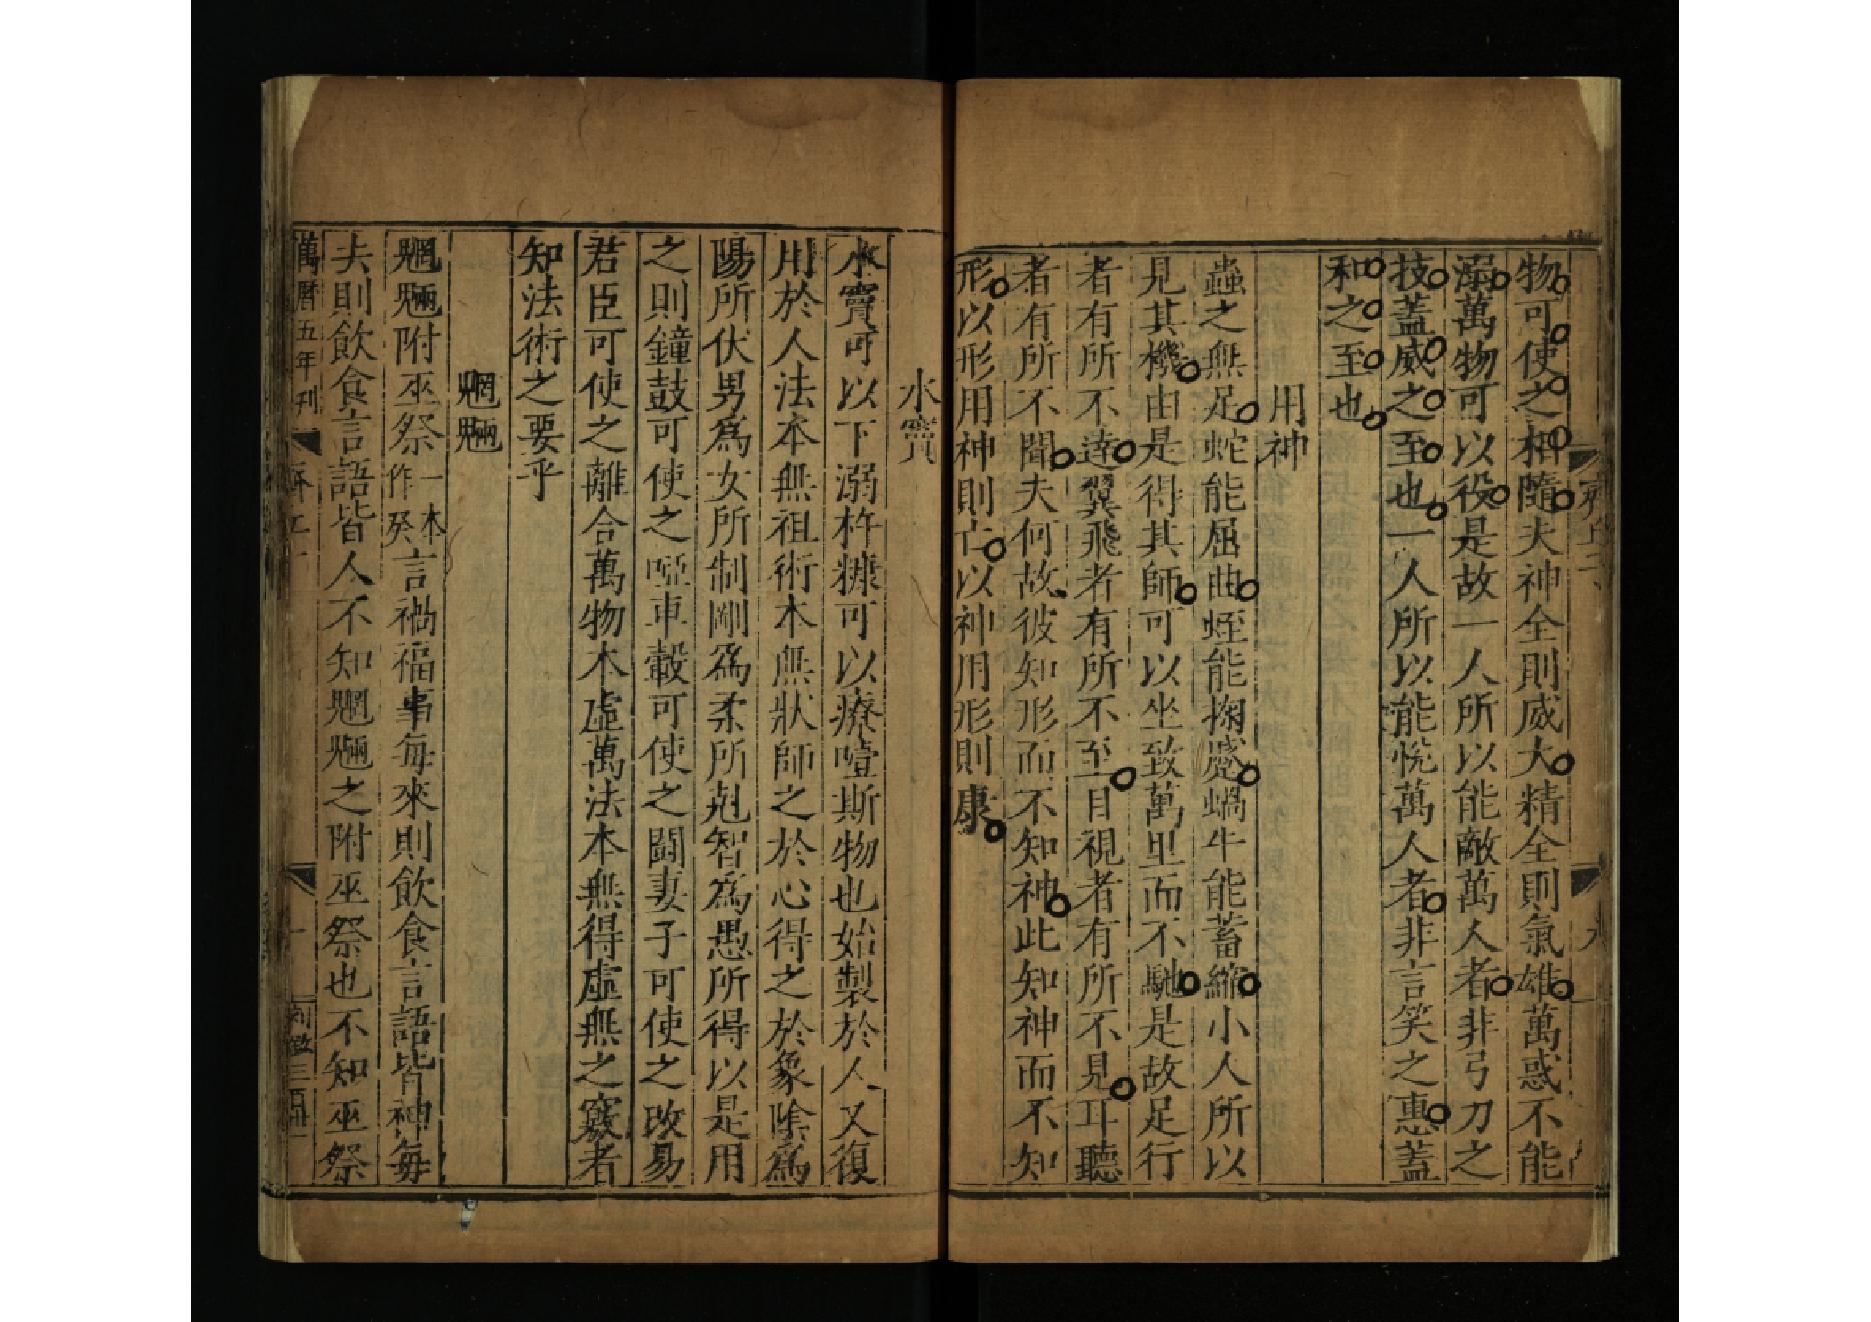 物可使之相隨夫神全則威大精全則氣雄萬惑不能
溺萬物可以役是故一人所以能敵萬人者非弓刀之
技蓋威之至也一人所以能悅萬人者非言笑之惠蓋
和之至也
用神
蟲之無足蛇能屈曲蛭能掬蹙蝸牛能蓄縮小人所以
見其機由是得其師可以坐致萬里而不馳是故足行
者有所不達翼飛者有所不至目視者有所不見耳聽
者有所不聞夫何故彼知形而不知神此知神而不知
形以形用神則亡以神用形則康
水竇
水竇可以下溺杵糠可以療噎斯物也始製於人又復
用於人法本無祖術本無狀師之於心得之於象陰爲
陽所伏男爲女所制剛爲柔所剋智爲愚所得以是用
之則鐘鼓可使之啞車轂可使之鬪妻子可使之改易
君臣可使之離合萬物本虛萬法本無得虛無之竅者
知法術之要乎
魍魎
魍魎附巫祭一本作癸言禍福事每來則飲食言語皆神每
去則飲食言語皆人不知魍魎之附巫祭也不知巫祭
萬曆五年刊